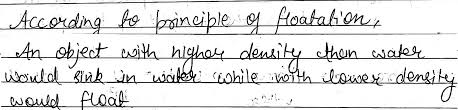 According to principle of floatation,
An object with higher density then water
would sink in water while with lower density
would float.